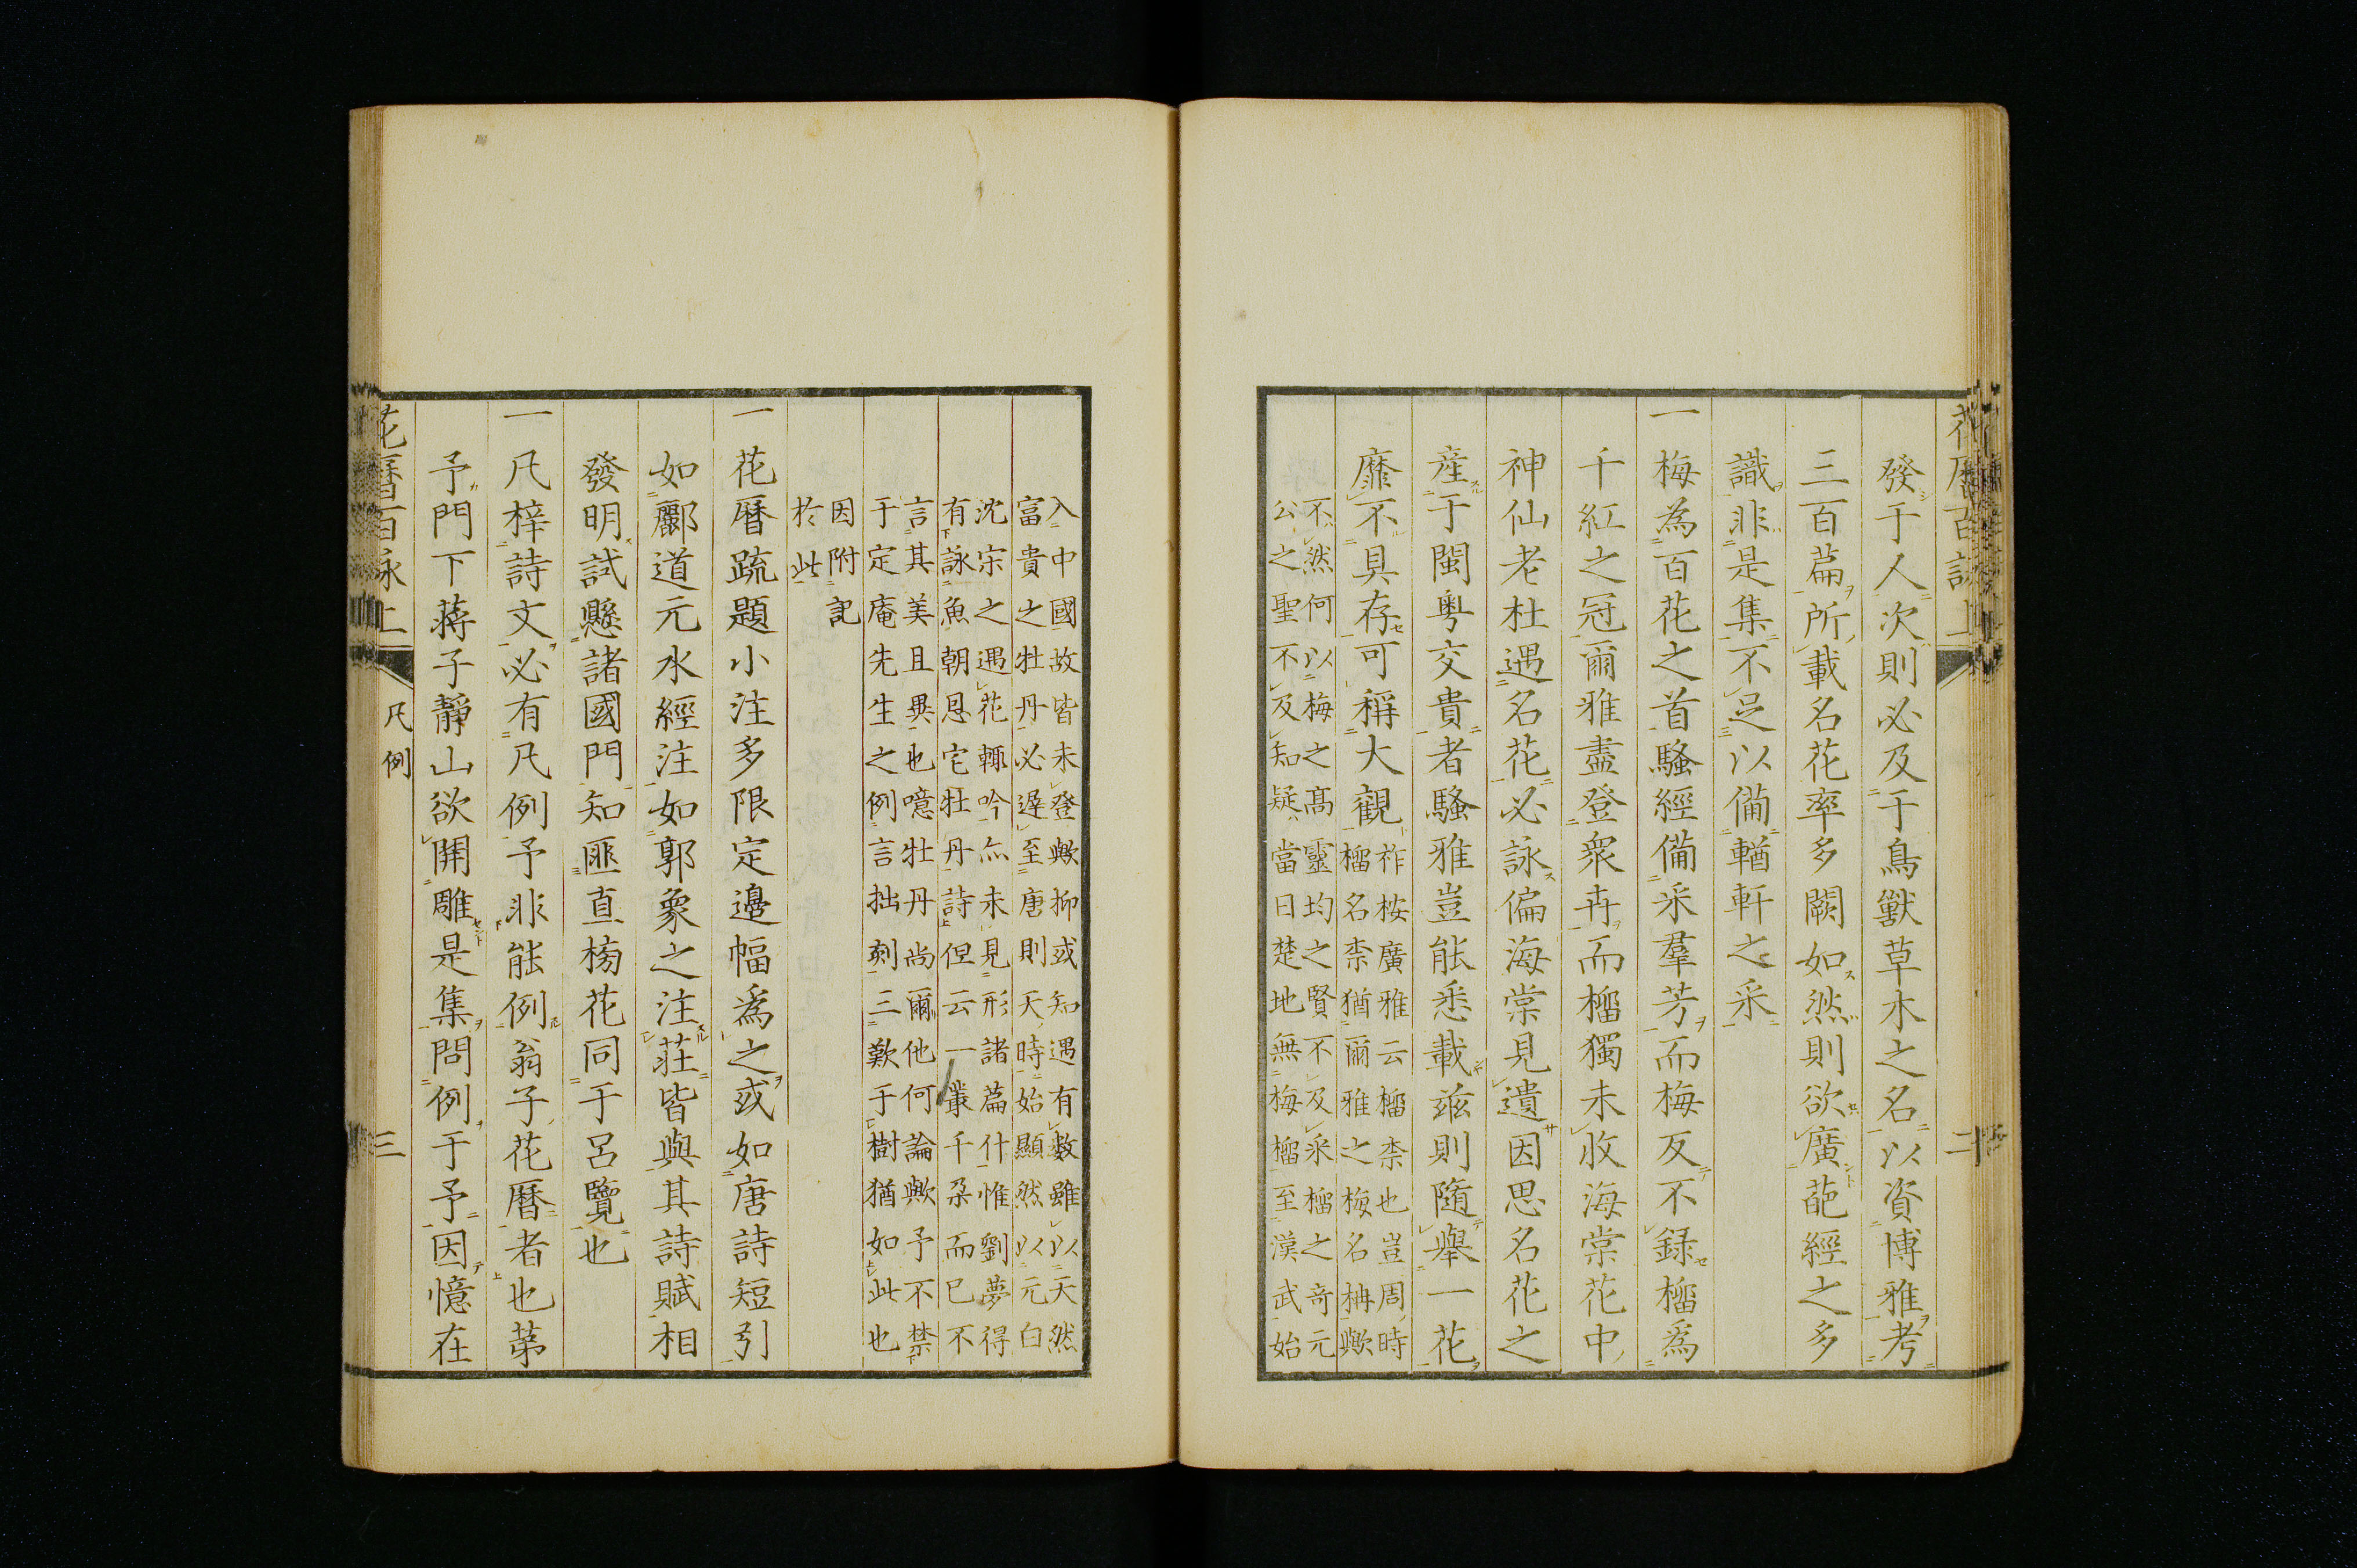 發于人次則必及于鳥獸草木之名以資博雅考
三百篇所載名花率多闕如然則欲廣葩經之多
識非是集不足以備輶軒之采
一梅為百花之首騷經備采羣芳而梅反不録橊爲
千紅之冠爾雅盡登衆卉而橊獨未收海棠花中
神仙老杜遇名花必詠偏海棠見遺因思名花之
産于閩粤交貴者騷雅豈能悉載兹則隨舉一花
靡不具存可稱大觀
祚桉廣雅云橊柰也豈周時
橊名柰猶爾雅之梅名柟歟
不然何以梅之髙靈均之賢不及采橊之奇元
公之聖不及知疑當日楚地無梅橊至漢武始
入中國故皆未登歟抑或知遇有數雖以天然
富貴之牡丹必遲至唐則天時始顯然以元白
沈宋之遇花輙吟亦未見形諸篇什惟劉夢得
有詠魚朝恩宅牡丹詩但云一叢千朶而已不
言其美且異也噫牡丹尚爾他何論歟予不禁
于定庵先生之例言拙刻三歎于樹猶如此也
因附記
於此
一花曆疏題小注多限定邉幅爲之或如唐詩短引
如酈道元水經注如郭象之注莊皆與其詩賦相
發明試懸諸國門知匪直榜花同于呂覽也
一凡梓詩文必有凡例予非能例翁子花曆者也苐
予門下蒋子靜山欲開雕是集問例于予因憶在
花曆百詠上
凡例
三